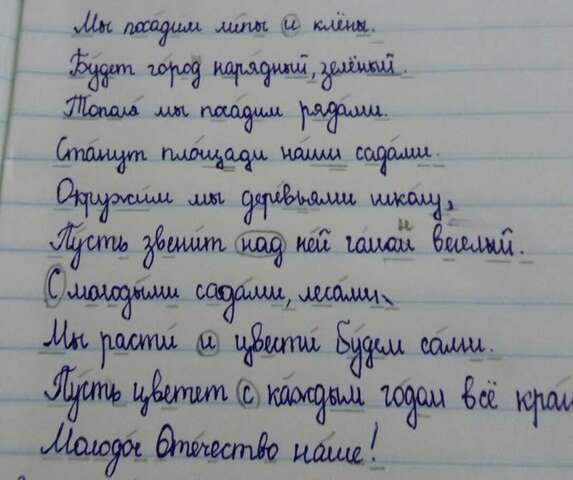 Мы посадим липы и клёны.
Будет город нарядный, зелёный.
Тополя мы посадим рядами.
Станут площади наши садами.
Окружим мы деревьями школу,
Пусть звенит над ней гомон веселый.
С молодыми садами, лесами,
Мы расти и цвести будем сами.
Пусть цветет с каждым годом всё кра
Молодое Отечество наше!